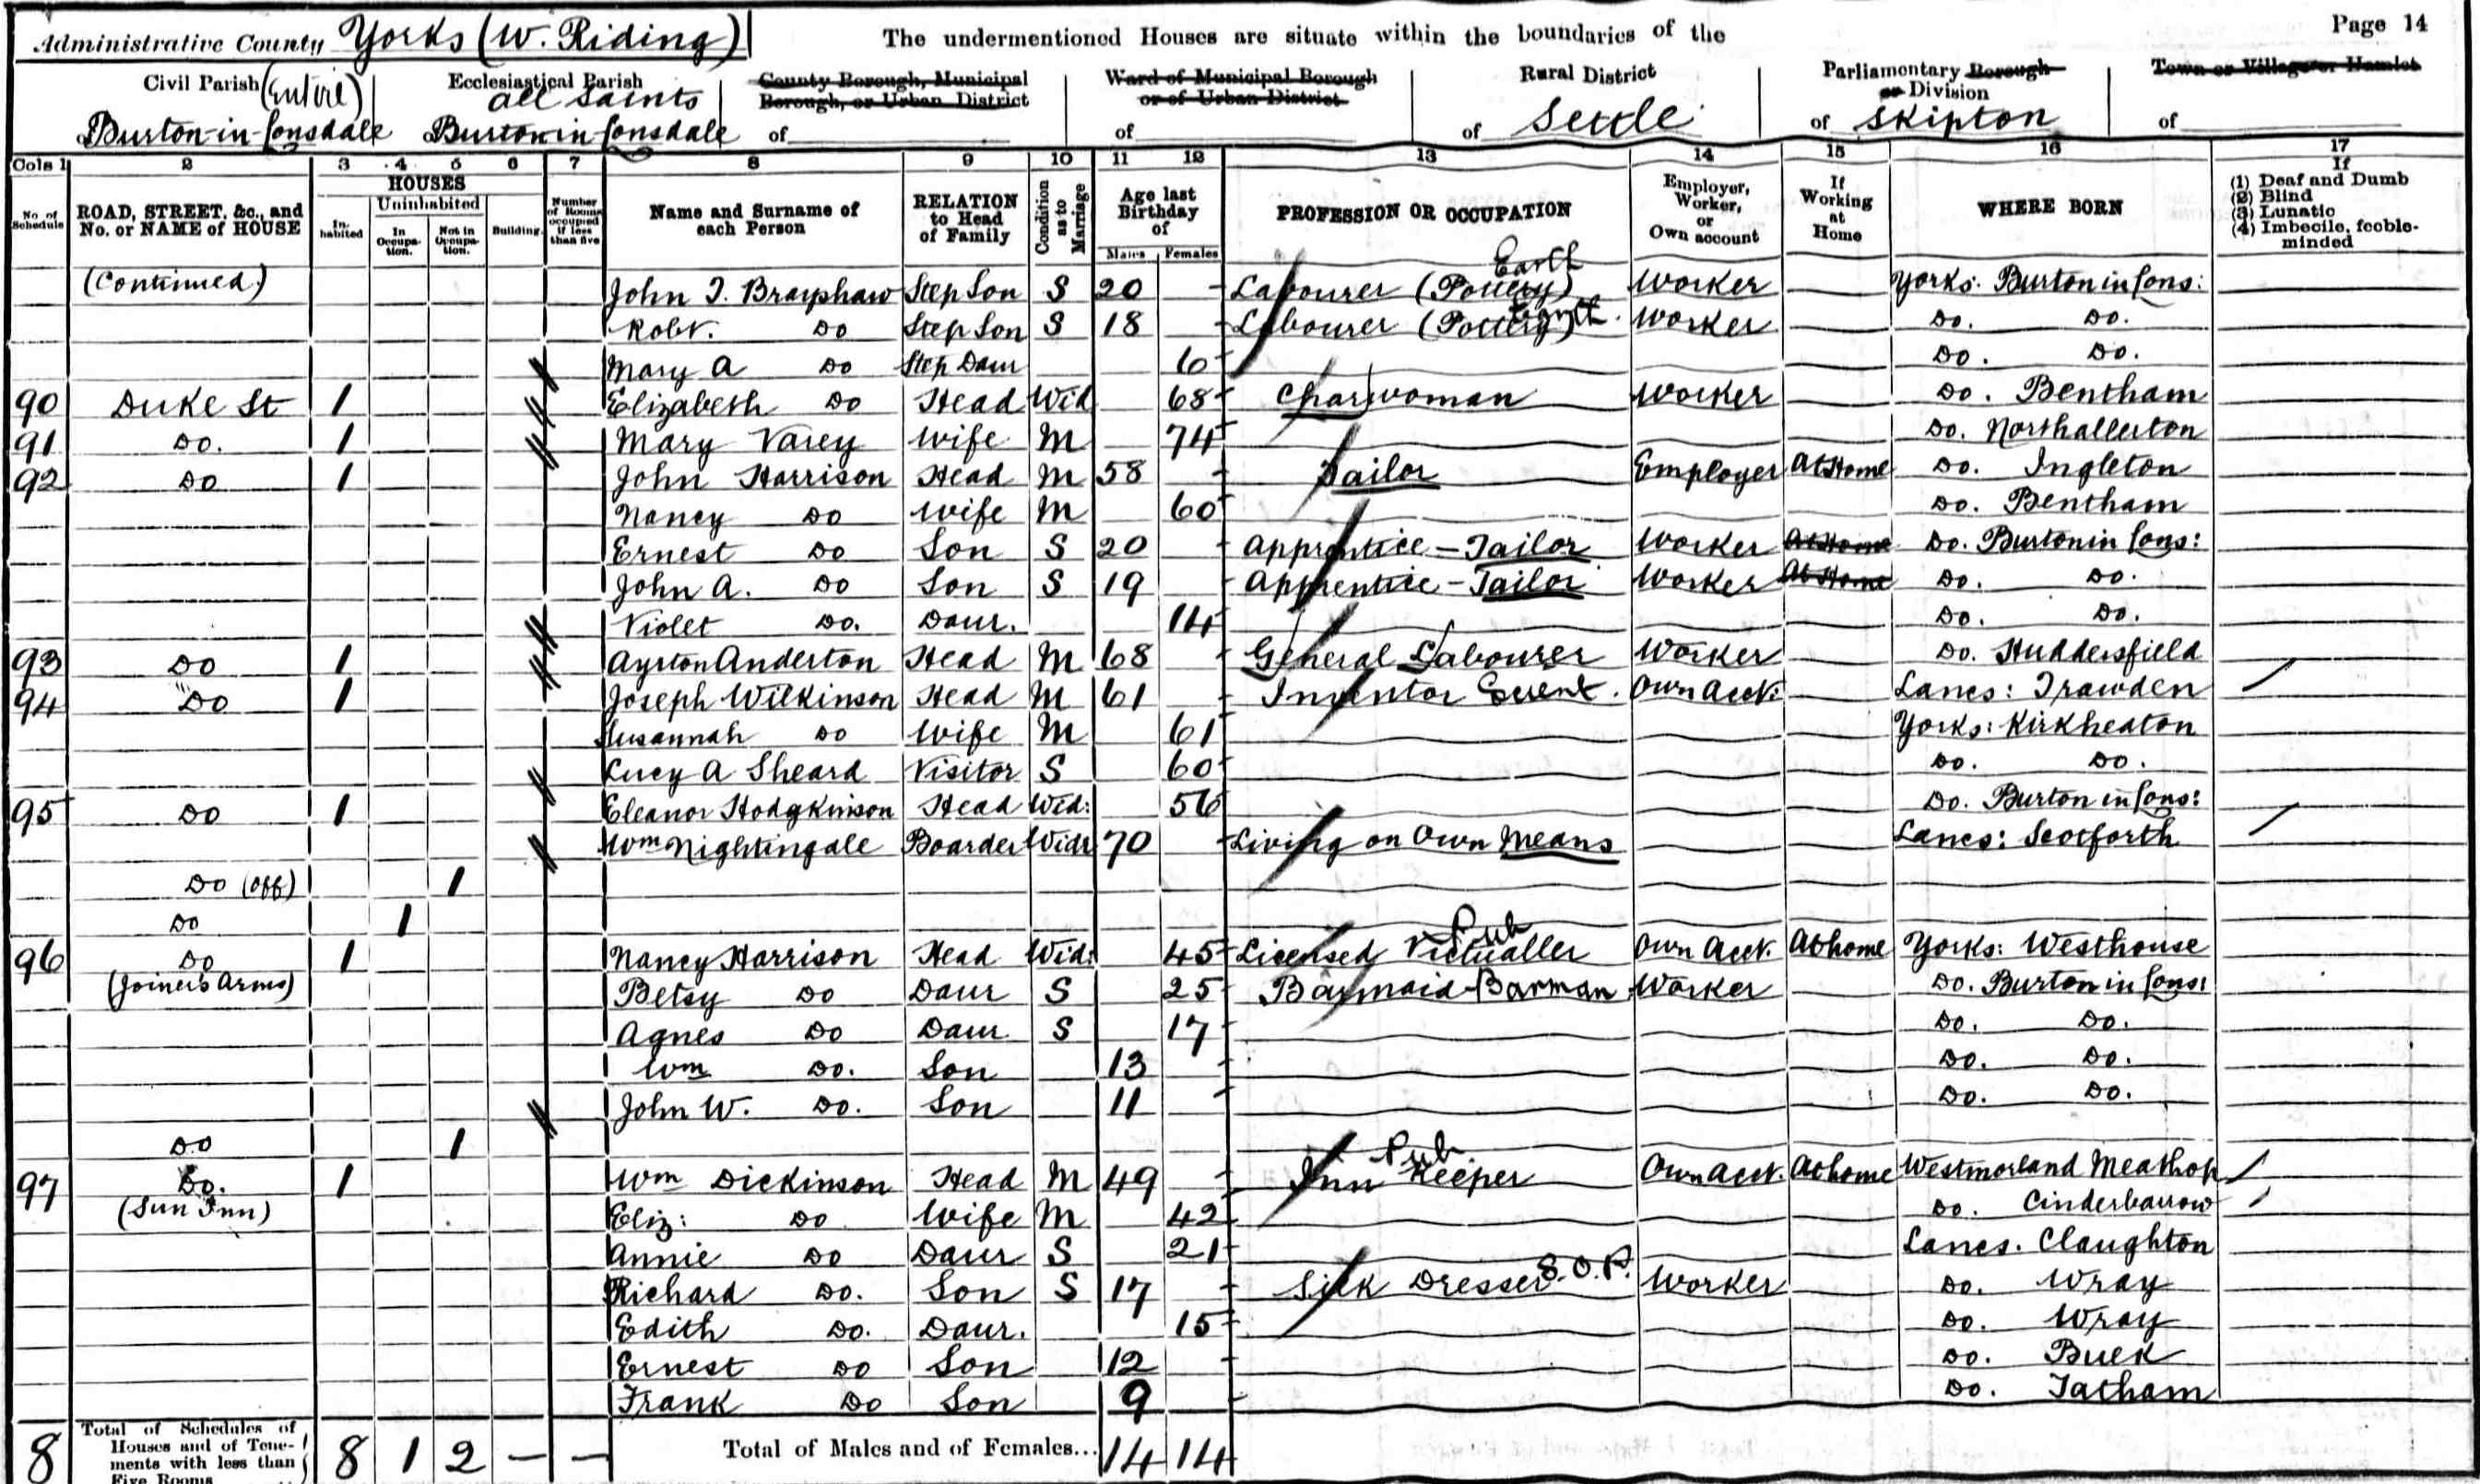 Administrative County Yorks (W. Riding) The undermentioned Houses are situate within the boundaries of the Page 14
Civil Parish (Entire) Ecclesiastical Parish County Borough, Municipal Borough, or Urban District Ward of Municipal Borough or of Urban District Rural District Parliamentary Borough or Division Town or Village or Hamlet
Burton-in-Lonsdale All Saints Burton in Lonsdale of of of Settle of Skipton of
Cols 1 2 3 4 5 6 7 8 9 10 11 12 13 14 15 16 17
No. of Schedule ROAD, STREET, &c., and No. or NAME of HOUSE HOUSES Inhabited Uninhabited In Occupation. Not in Occupation. Building. Number of Rooms occupied if less than five Name and Surname of each Person RELATION to Head of Family Condition as to Marriage Age last Birthday of Males Females PROFESSION OR OCCUPATION Employer, Worker, or Own account If Working at Home WHERE BORN If (1) Deaf and Dumb (2) Blind (3) Lunatic (4) Imbecile, feeble-minded
(Continued) John T. Brayshaw Step Son S 20 Labourer (Pottery) Earth Worker Yorks: Burton in Lons:
Robt. Do Step Son S 18 Labourer (Pottery) Earth Worker Do. Do.
Mary A Do Step Daur 6 Do. Do.
90 Duke St 1 Elizabeth Do Head Wid 68 Charwoman Worker Do. Bentham
91 Do. 1 Mary Varey Wife M 74 Do. Northallerton
92 Do 1 John Harrison Head M 58 Tailor Employer At Home Do. Ingleton
Nancy Do Wife M 60 Do. Bentham
Ernest Do Son S 20 Apprentice - Tailor Worker At Home Do. Burton in Lons:
John A. Do Son S 19 Apprentice - Tailor Worker At Home Do. Do.
Violet Do. Daur. 14 Do. Do.
93 Do 1 Ayrton Anderton Head M 68 General Labourer Worker Do. Huddersfield
94 Do 1 Joseph Wilkinson Head M 61 Inventor Own Acct. Lancs: Trawden
Susannah Do Wife M 61 Yorks: Kirkheaton
Lucy A Sheard Visitor S 60 Do. Do.
95 Do 1 Eleanor Hodgkinson Head Wid: 56 Do. Burton in Lons:
Wm Nightingale Boarder Widr 70 Living on Own Means Lancs: Scotforth
Do (off) 1
Do 1
96 Do 1 Nancy Harrison Head Wid: 45 Licensed Victualler Pub Own Acct. At home Yorks: Westhouse
(Joiners Arms) Betsy Do Daur S 25 Barmaid Barman Worker Do. Burton in Lons:
Agnes Do Daur S 17 Do. Do.
Wm Do. Son 13 Do. Do.
John W. Do. Son 11 Do. Do.
Do 1
97 Do. 1 Wm Dickinson Head M 49 Inn Keeper Pub Own Acct. At home Westmorland Meathop
(Sun Inn) Eliz: Do Wife M 42 Do. Cinderbarrow
Annie Do Daur S 21 Lancs. Claughton
Richard Do. Son S 17 Silk Dresser S.O.P. Worker Do. Wray
Edith Do. Daur. 15 Do. Wray
Ernest Do Son 12 Do.
Frank Do Son 9 Do. Tatham
8 Total of Schedules of Houses and of Tenements with less than Five Rooms 8 1 2 – – Total of Males and of Females... 14 14